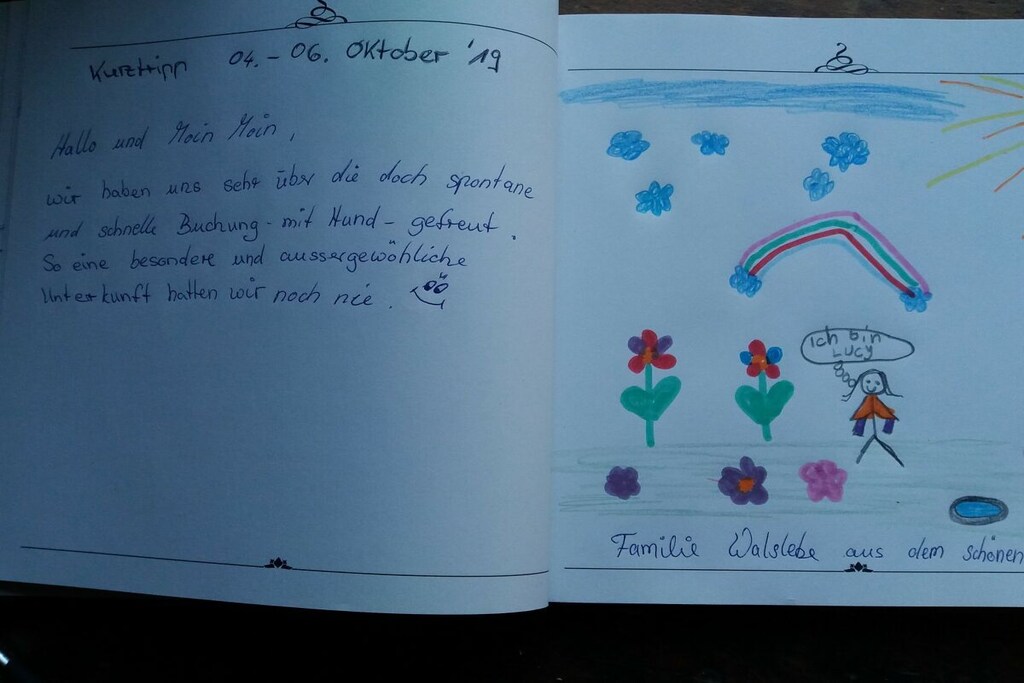 Kurztripp 04. - 06. Oktober '19
Hallo und Moin Moin,
wir haben uns sehr über die doch spontane
und schnelle Buchung - mit Hund - gefreut.
So eine besondere und aussergewöhliche
Unterkunft hatten wir noch nie.
ich bin
LUCY
Familie Walslebe aus dem schönen